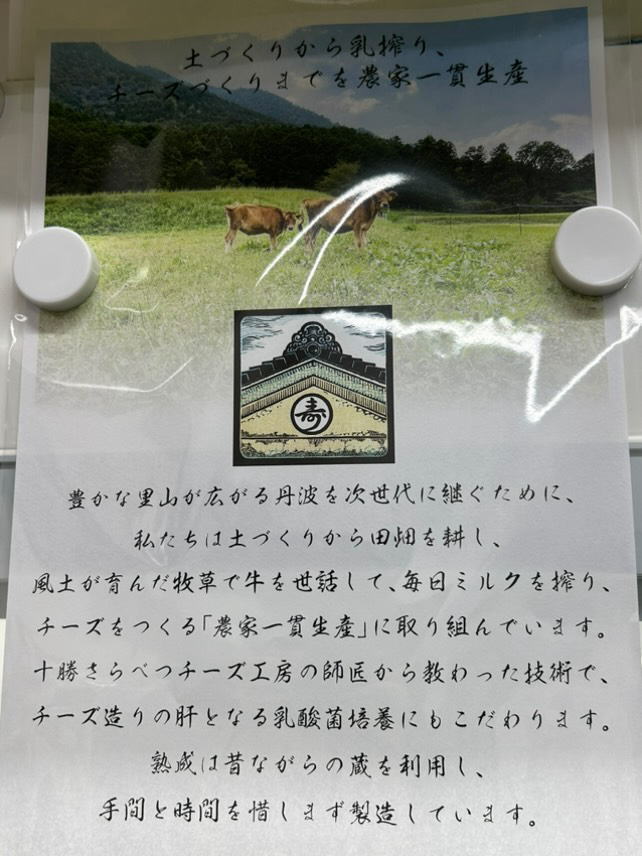 土づくりから乳搾り、
チーズづくりまでを農家一貫生産
寿
豊かな里山が広がる丹波を次世代に継ぐために、
私たちは土づくりから田畑を耕し、
風土が育んだ牧草で牛を世話して、毎日ミルクを搾り、
チーズをつくる「農家一貫生産」に取り組んでいます。
十勝さらべつチーズ工房の師匠から教わった技術で、
チーズ造りの肝となる乳酸菌培養にもこだわります。
熟成は昔ながらの蔵を利用し、
手間と時間を惜しまず製造しています。